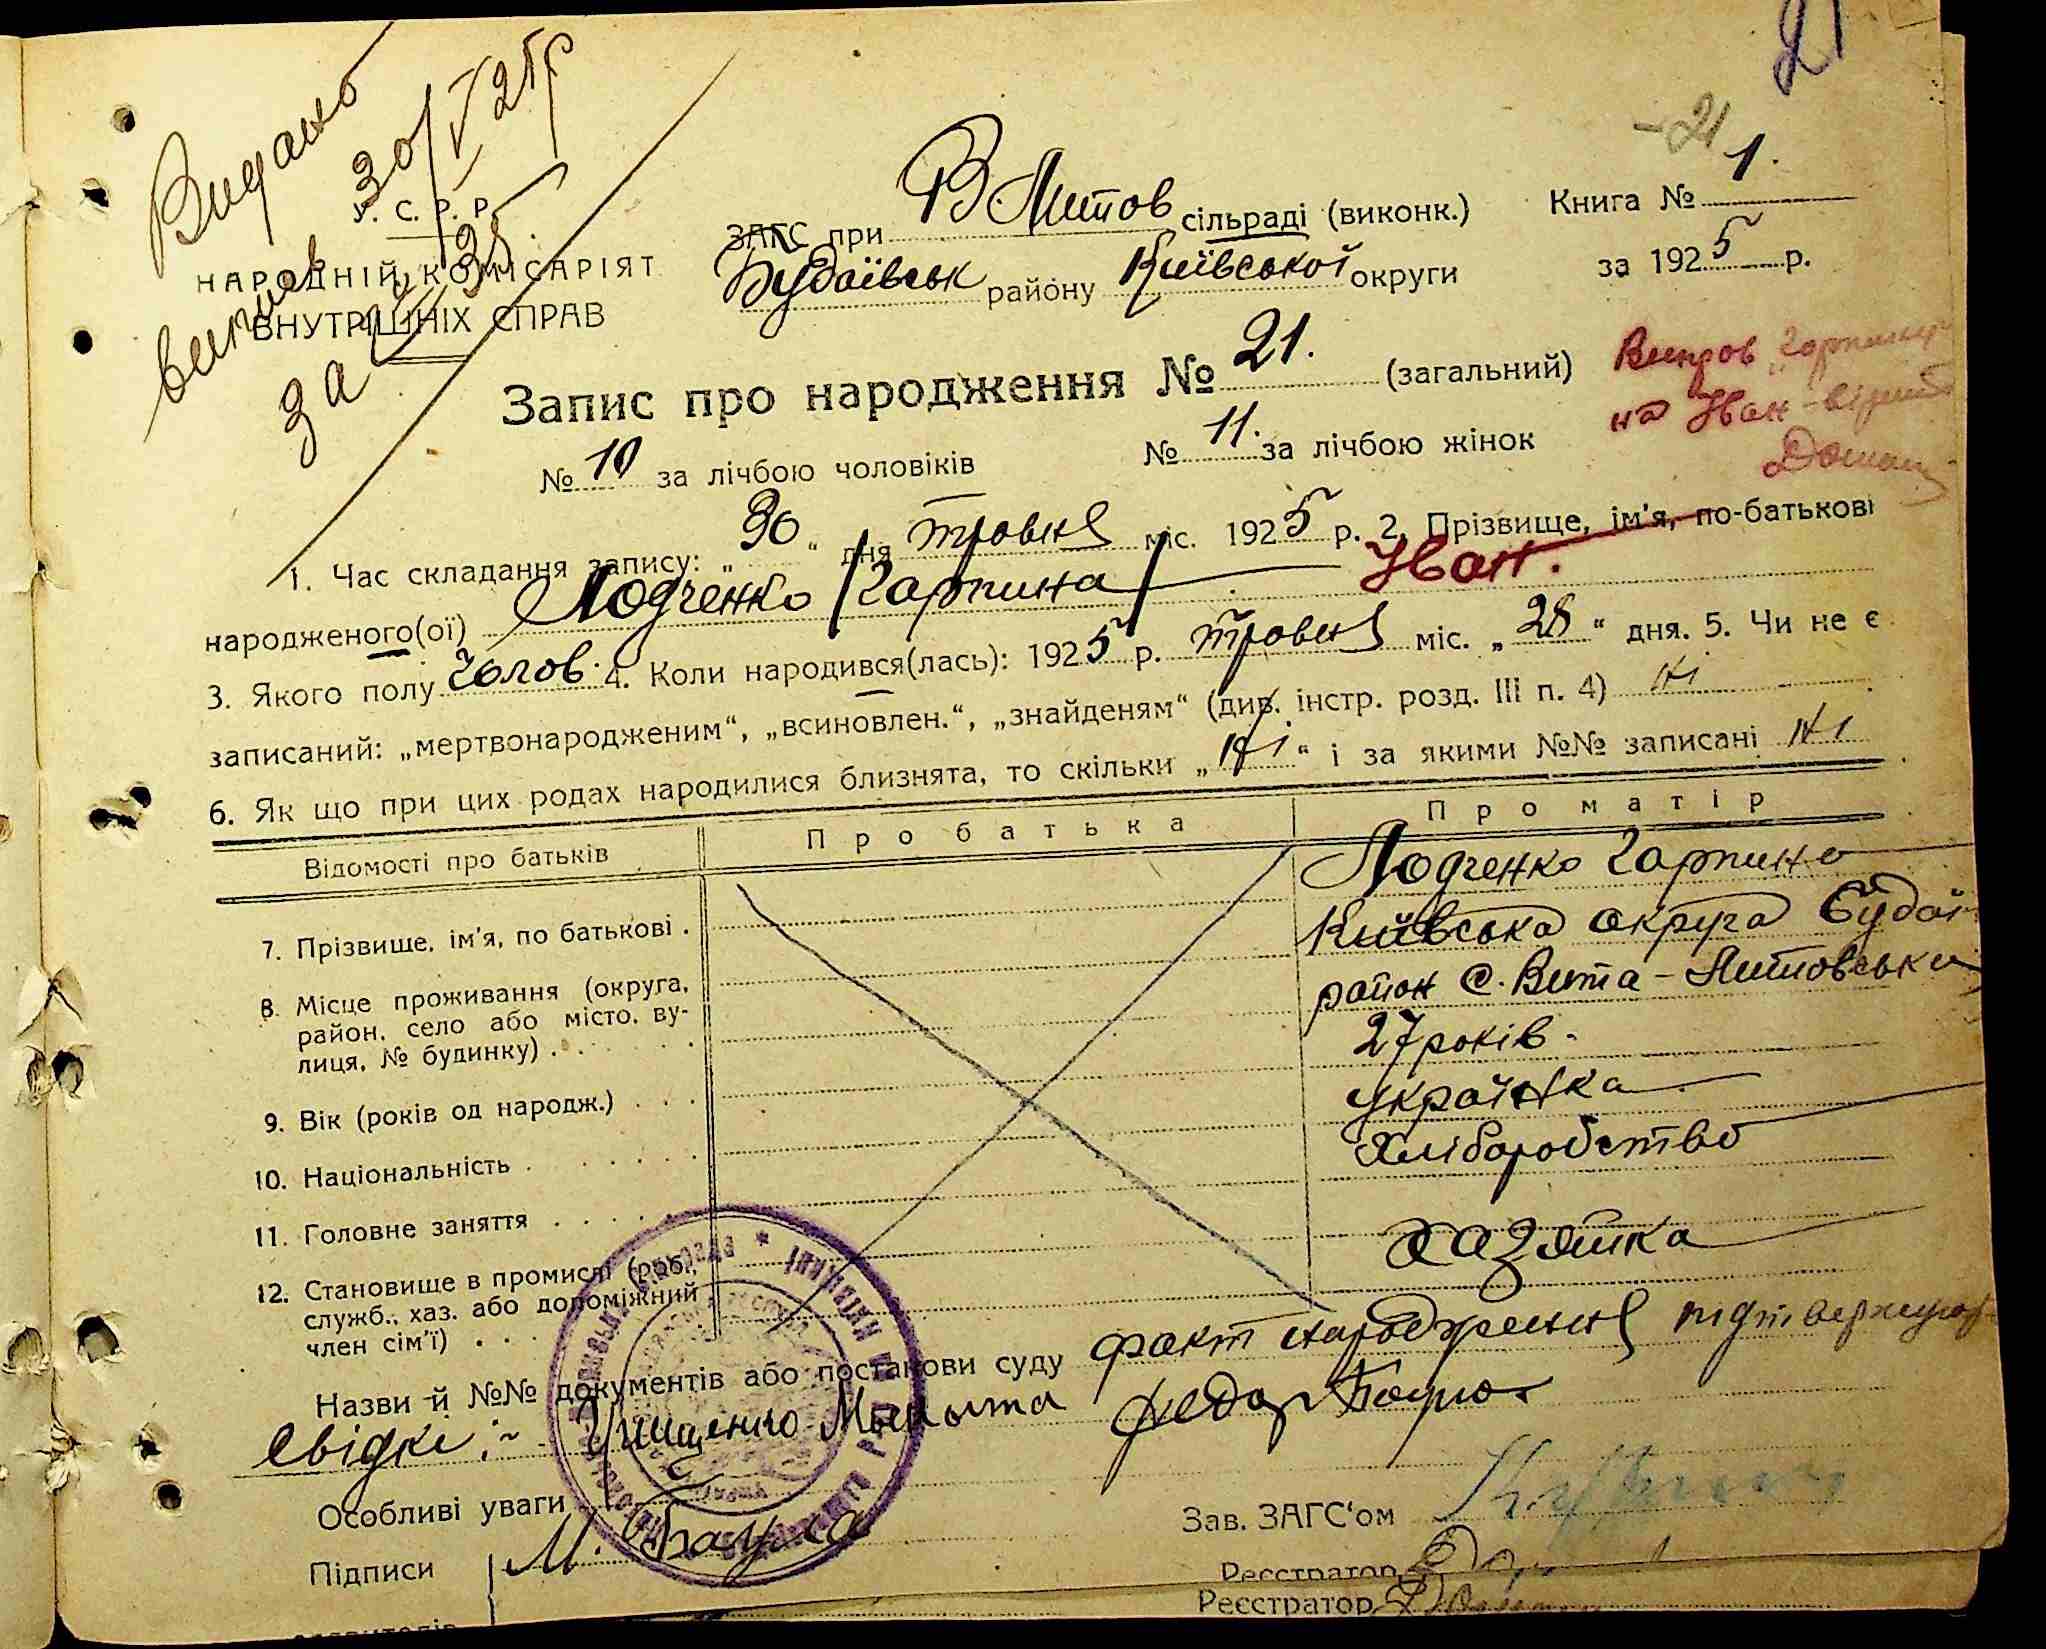 21
-21
Видано 30/V 25р
випис за № 35
У. С. Р. Р.
НАРОДНІЙ КОМІСАРІЯТ
ВНУТРІШНІХ СПРАВ
ЗАГС при В Литов сільраді (виконк.)
Будаївськ району Київської округи
Книга № 1.
за 1925 р.
Запис про народження № 21. (загальний)
№ 10 за лічбою чоловіків № 11. за лічбою жінок
Випров „Гарпину
на Іван
1. Час складання запису: „30“ дня травня міс. 1925 р. 2. Прізвище, ім'я, по-батькові
народженого(ої) Лодченко Гарпина Іван.
3. Якого полу чолов. 4. Коли народився(лась): 1925 р. травня міс. „28“ дня. 5. Чи не є
записаний: „мертвонародженим“, „всиновлен.“, „знайденям“ (див. інстр. розд. III п. 4) ні
6. Як що при цих родах народилися близнята, то скільки „ні“ і за якими №№ записані ні
Відомості про батьків Про батька Про матір
7. Прізвище, ім'я, по батькові . Лодченко Гарпина
8. Місце проживання (округа, Київська округа Будаї
район, село або місто, ву- район с. Вита-Литовська
лиця, № будинку) . . . . .
9. Вік (років од народж.) . . . 27 років.
10. Національність . . . . . . українка
11. Головне заняття . . . . . . Хліборобство
12. Становище в промислі (роб., хазяйка
служб., хаз. або допоміжний
член сім'ї) . . .
Назви й №№ документів або постанови суду факт народження
Свідкі:- Микита Федор
Особливі уваги
Зав. ЗАГС'ом
Підписи М.
Реєстратор
Реєстратор